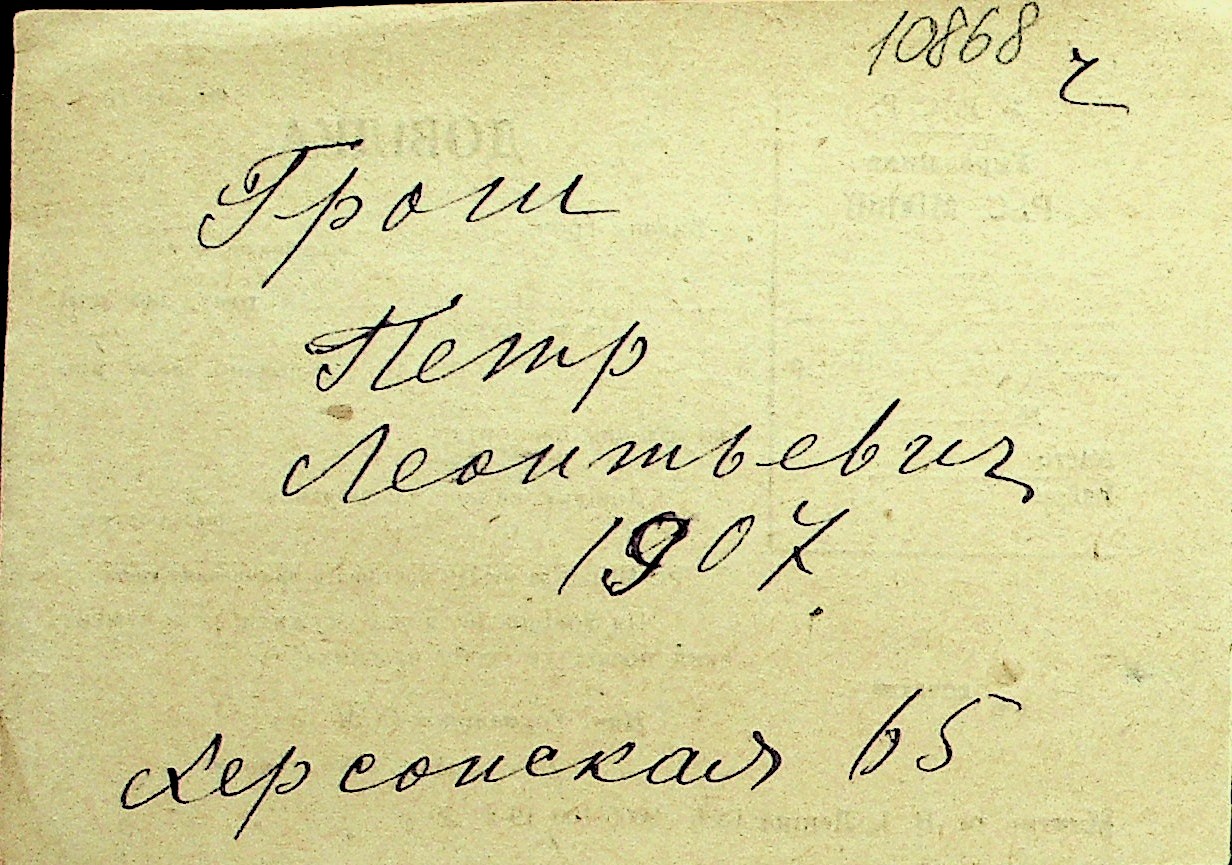 10868 ч
Грош
Петр
Леонтьевич
1907.
Херсонская 65